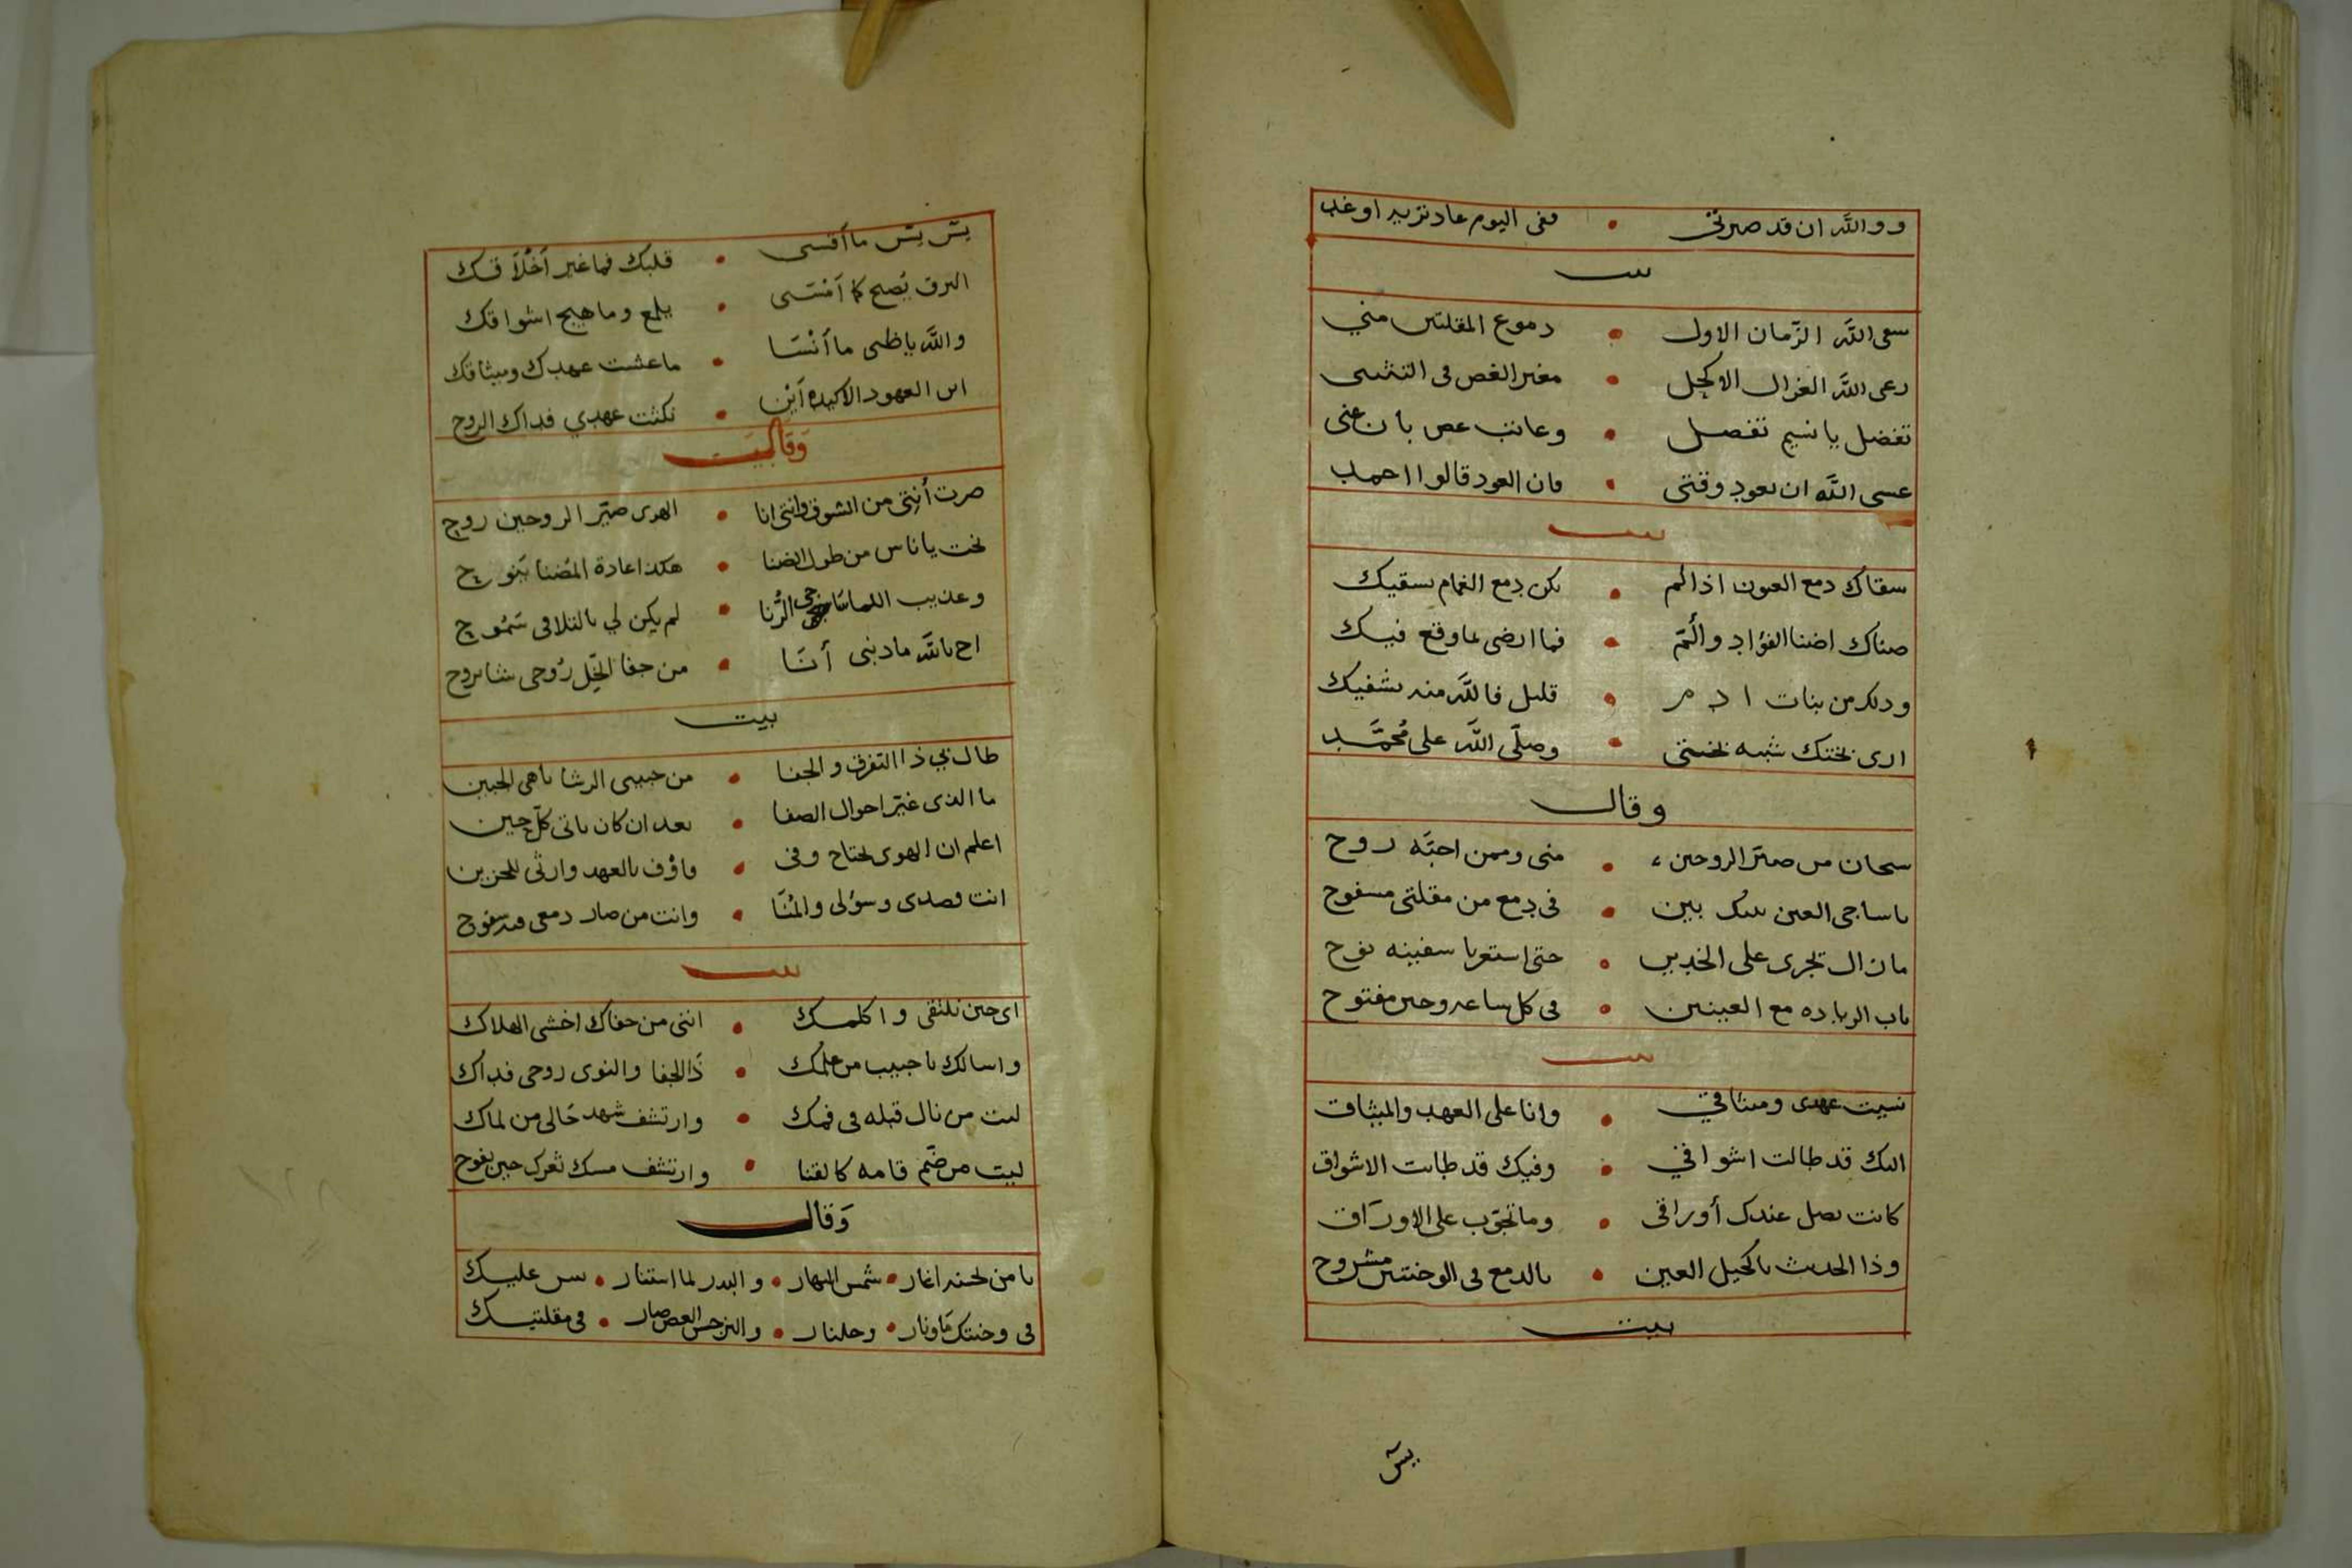 ووالله ان قد صبرتي • ففي اليوم عاد تريد او غد
بيت
سقى الله الزمان الاول • دموع المقلتين مني
رعى الله الغزال الاكحل • مغير الغصن في التثني
تفضل يا نسيم تفضل • وعاتب غصن بان عني
عسى الله ان يعود وقتي • فان العود قالوا احمد
بيت
سقاك دمع العيون اذا لم • يكن دمع الغمام يسقيك
ضناك اضنا الفؤاد وألّم • فما ارضى بما وقع فيك
وديك من بنات ادم • قليل فالله منه يشفيك
ارى بختك شبه بختي • وصلّى الله على مُحمَّد
وقال
سبحان من صيّر الروحين • مني وممن احبّه روح
يا ساجي العين بينك بين • في دمع من مقلتي مسفوح
ما زال تجري على الخدين • حتى استعرنا سفينه نوح
باب الزياده مع العينين • في كل ساعه وحين مفتوح
بيت
نسيت عهدى وميثاقي • وانا على العهد والميثاق
اليك قد طالت اشواقي • وفيك قد طابت الاشواق
كانت تصل عندك أوراقي • وما تجوّب على الاورَاق
وذا الحديث يا كحيل العين • بالدمع في الوجنتين مشروح
بيت
بسّ
بسّ بسّ ما أقسى • قلبك فما غير أَخْلَاقك
البرق يُصبح كما أمسى • يلمع وما هيج اشواقك
والله يا ظبي ما أَنْسَا • ما عشت عهدك وميثاقك
اين العهود الاكيده أَيْن • نكثت عهدي فداك الروح
وَقَال بيَت
صرت أنتي من الشوق وانتي انا • الهوى صيّر الروحين روح
نحت يا ناس من طول الضنا • هكذا عادة المُضنا يَنوح
وعذيب اللما سَاجي الرُّنا • لم يكن لي بالتلاقي سَمُوح
اح بالله ما ذنبي أنَا • من جفا الخِل رُوحى شا تروح
بيت
طال بي ذا التفرق والجفا • من حبيبي الرشا باهى الجبين
ما الذى غيّر احوال الصفا • بعد ان كان ياتي كلّ حين
اعلم ان الهوى يحتاج وفي • فاوْف بالعهد وارثى للحزين
انت قصدى وسؤلى والمُنَا • وانت من صار دمعى فيه سفوح
بيت
اى حين نلتقى واكلمك • انني من جفاك اخشى الهلاك
واسالك يا حبيب من علمك • ذَا الجفا والنوى روحى فداك
ليت من نال قبله في فمك • وارتشف شهد حَالى من لماك
ليت من ضّم قامه كالقنا • وارتشف مسك ثغرك حين يفوح
وَقال
يا من لحسنه اغار • شمس النهار • والبدر لما استنار • بين عليك
في وجنتك مَا ونار • وجلنار • والنرجس الغصن صار • في مقلتيك